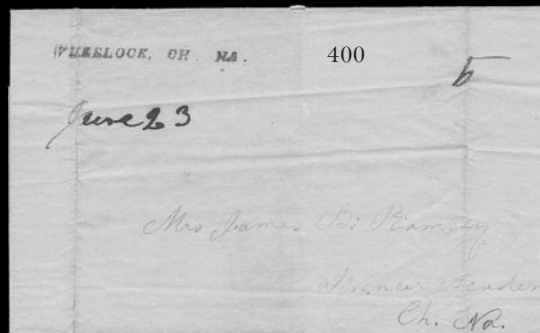 WHEELOCK, CH. NA. 400
5
June 23
Mrs James B. Ramsey
Spencer Academ
Ch. Na.